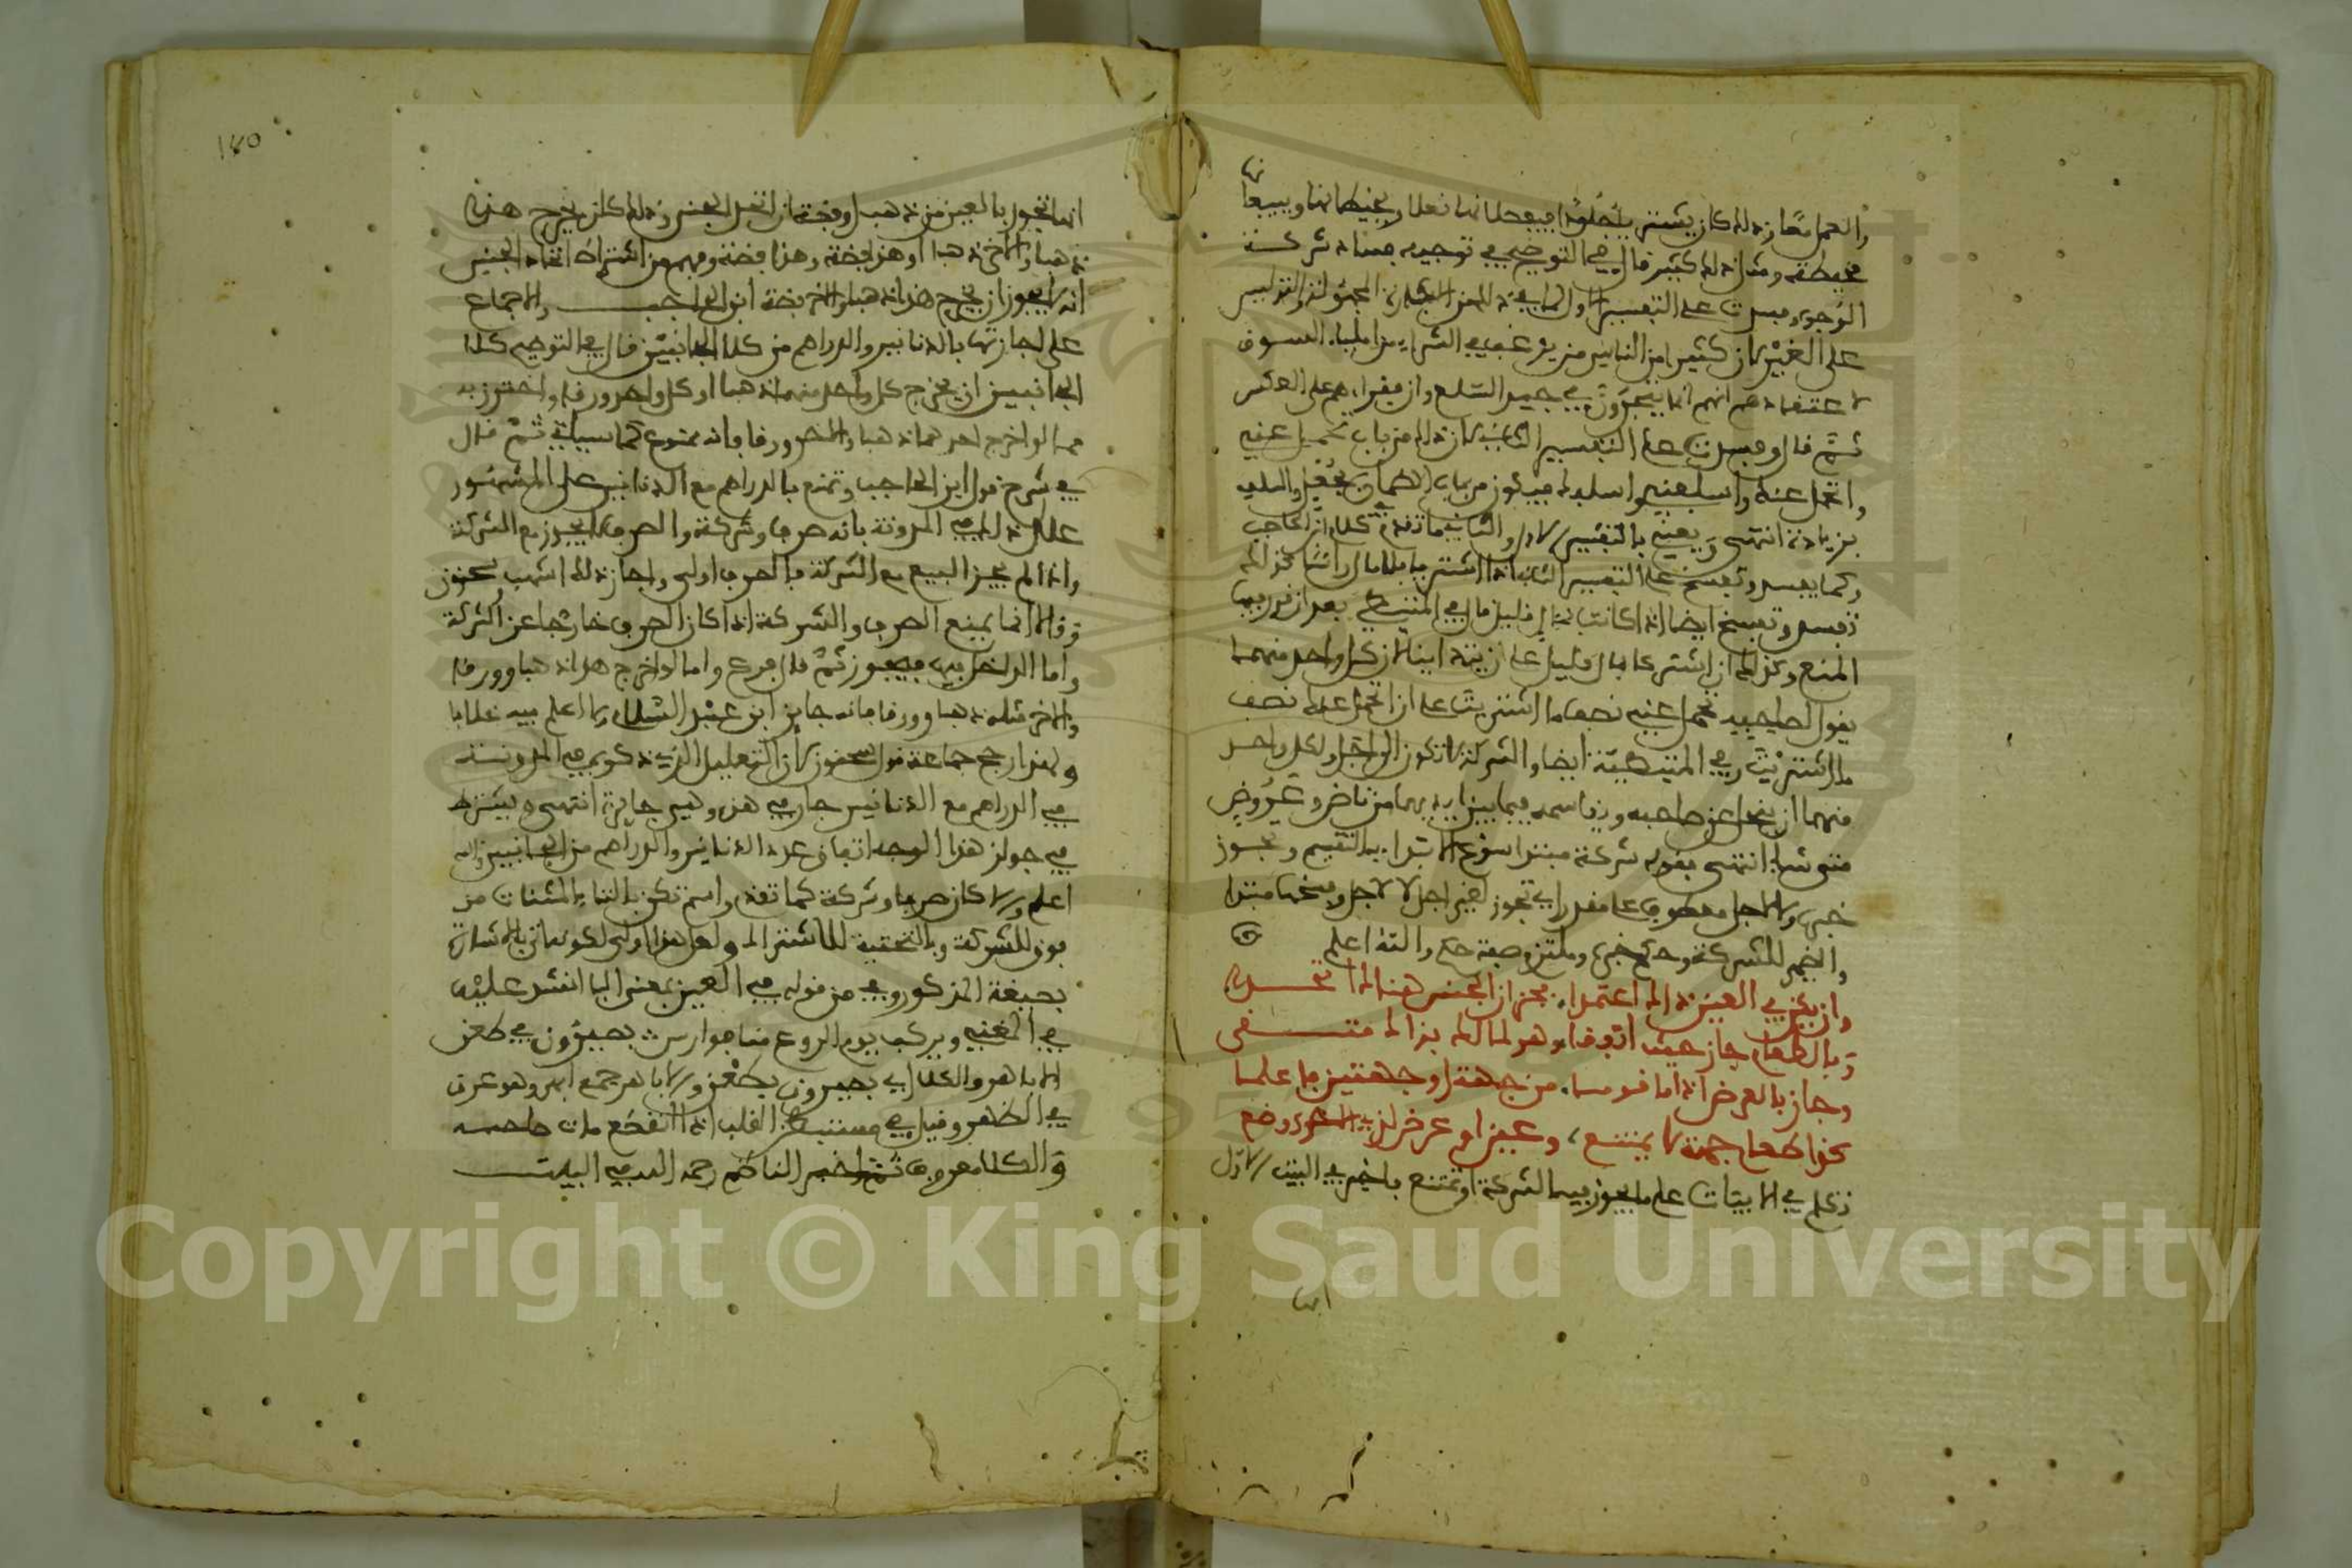 والعمل معا وذلك كان يشتريا جلودا فيجعلانها نعلا ويخيطانها ويبيعانها
مخيطة ومثل ذلك كثير قال في التوضيح في توجيه فساد شركة
الوجوه فسدت على التفسير الاول لما في ذلك من الجهولة والتدليس
على الغير لان كثيرا من الناس من يرغب في الشراء من املياء السوق
لاعتقادهم انهم انما يتجرون في جيد السلع وان فقراءهم على العكس
ثم قال وفسدت على التفسير الثاني لان ذلك من باب تحمل عني
واتحمل عنك واسلفني واسلفك فيكون من باب الضمان بجعل والسلف
بزيادة انتهى ويعني بالتفسير الاول والثاني ما تقدم في كلام ابن الحاجب
وكما يفسد وتفسخ على التفسير الثاني اذا اشتريا بلا مال راسا كذلك
تفسد وتفسخ ايضا اذا كانت بمال قليل قال في المتيطي بعد ان قرر فيها
المنع وكذلك ان اشتركا بمال قليل على ان يتداينا لان كل واحد منهما
يقول لصاحبه تحمل عني نصف ما اشتريت على ان اتحمل عنك نصف
ما اشتريت وفي المتيطية ايضا والشركة لا تكون الى اجل ولكل واحد
منهما ان ينحل عن صاحبه ويقاسمه فيما بين ايديهما من ناض وعروض
متى شاء انتهى فقوله شركة مبتدا سوغ الابتداء به التقسيم وتجوز
خبره ولا لاجل معطوف على مقدر اي تجوز لغير اجل لا لاجل وفسخها مبتدا
والضمير للشركة وحكم خبره وملتزم صفة حكم والله اعلم
وان يكن في العين ذاك اعتمدا تجز ان الجنس هناك اتحدا
وبالطعام جاز حيث اتفقا وهو لمالك بذاك متقى
وجاز بالعرض اذا ما قوما من جهة او جهتين فاعلما
كذا طعام جهة لا يمتنع وعين او عرض لدى الاخرى وضع
تكلم في الابيات على ما يجوز فيه الشركة او تمتنع فاخبر في البيت الاول
انها
١٤٥
انما تجوز بالعين من ذهب او فضة ان اتحد الجنس وذلك كان يخرج هذا
ذهبا والاخر ذهبا او هذا فضة وهذا فضة وفهم من اشتراط اتحاد الجنس
انه لا يجوز ان يخرج هذا ذهبا والاخر فضة ابن الحاجب والاجماع
على اجازتها بالدنانير والدراهم من كلا الجانبين قال في التوضيح كلا
الجانبين ان يخرج كل واحد منهما ذهبا او كل واحد ورقا واحترز به
مما لو اخرج احدهما ذهبا والاخر ورقا فانه ممنوع كما سياتي ثم قال
في شرح قول ابن الحاجب وتمتنع بالدراهم مع الدنانير على المشهور
علل ذلك في المدونة بانه صرف وشركة والصرف لا يجوز مع الشركة
واذا لم يجز البيع مع الشركة فالصرف اولى واجاز ذلك اشهب وسحنون
وقالا انما يمنع الصرف والشركة اذا كان الصرف خارجا عن الشركة
واما الداخل فيها فيجوز ثم قال فرع واما لو اخرج هذا ذهبا وورقا
والاخر مثله ذهبا وورقا فانه جايز ابن عبد السلام ولا اعلم فيه خلافا
ولهذا رجح جماعة قول سحنون لان التعليل المذكور في المدونة
في الدراهم مع الدنانير جار في هذه وهي جايزة انتهى ويشترط
في جواز هذا الوجه اتفاق عدد الدنانير والدراهم من الجانبين والله
اعلم ولا كان صرفا وشركة كما تقدم واسم تكن بالتاء المثنات من
فوق للشركة وبالتحتية للاشتراك ولعل هذا اولى لكونها بالاشارة
بصيغة المذكور وفي من قوله في العين بمعنى الباء انشد عليه
في المغني ويركب يوم الروع منا فوارس بصيرون في طعن
الاباهر والكلا اي بصيرون بطعن والاباهر جمع ابهر وهو عرق
في الظهر وقيل في مستبطن القلب اذا انقطع مات صاحبه
والكلا معروف ثم اخبر الناظم رحمه الله في البيت